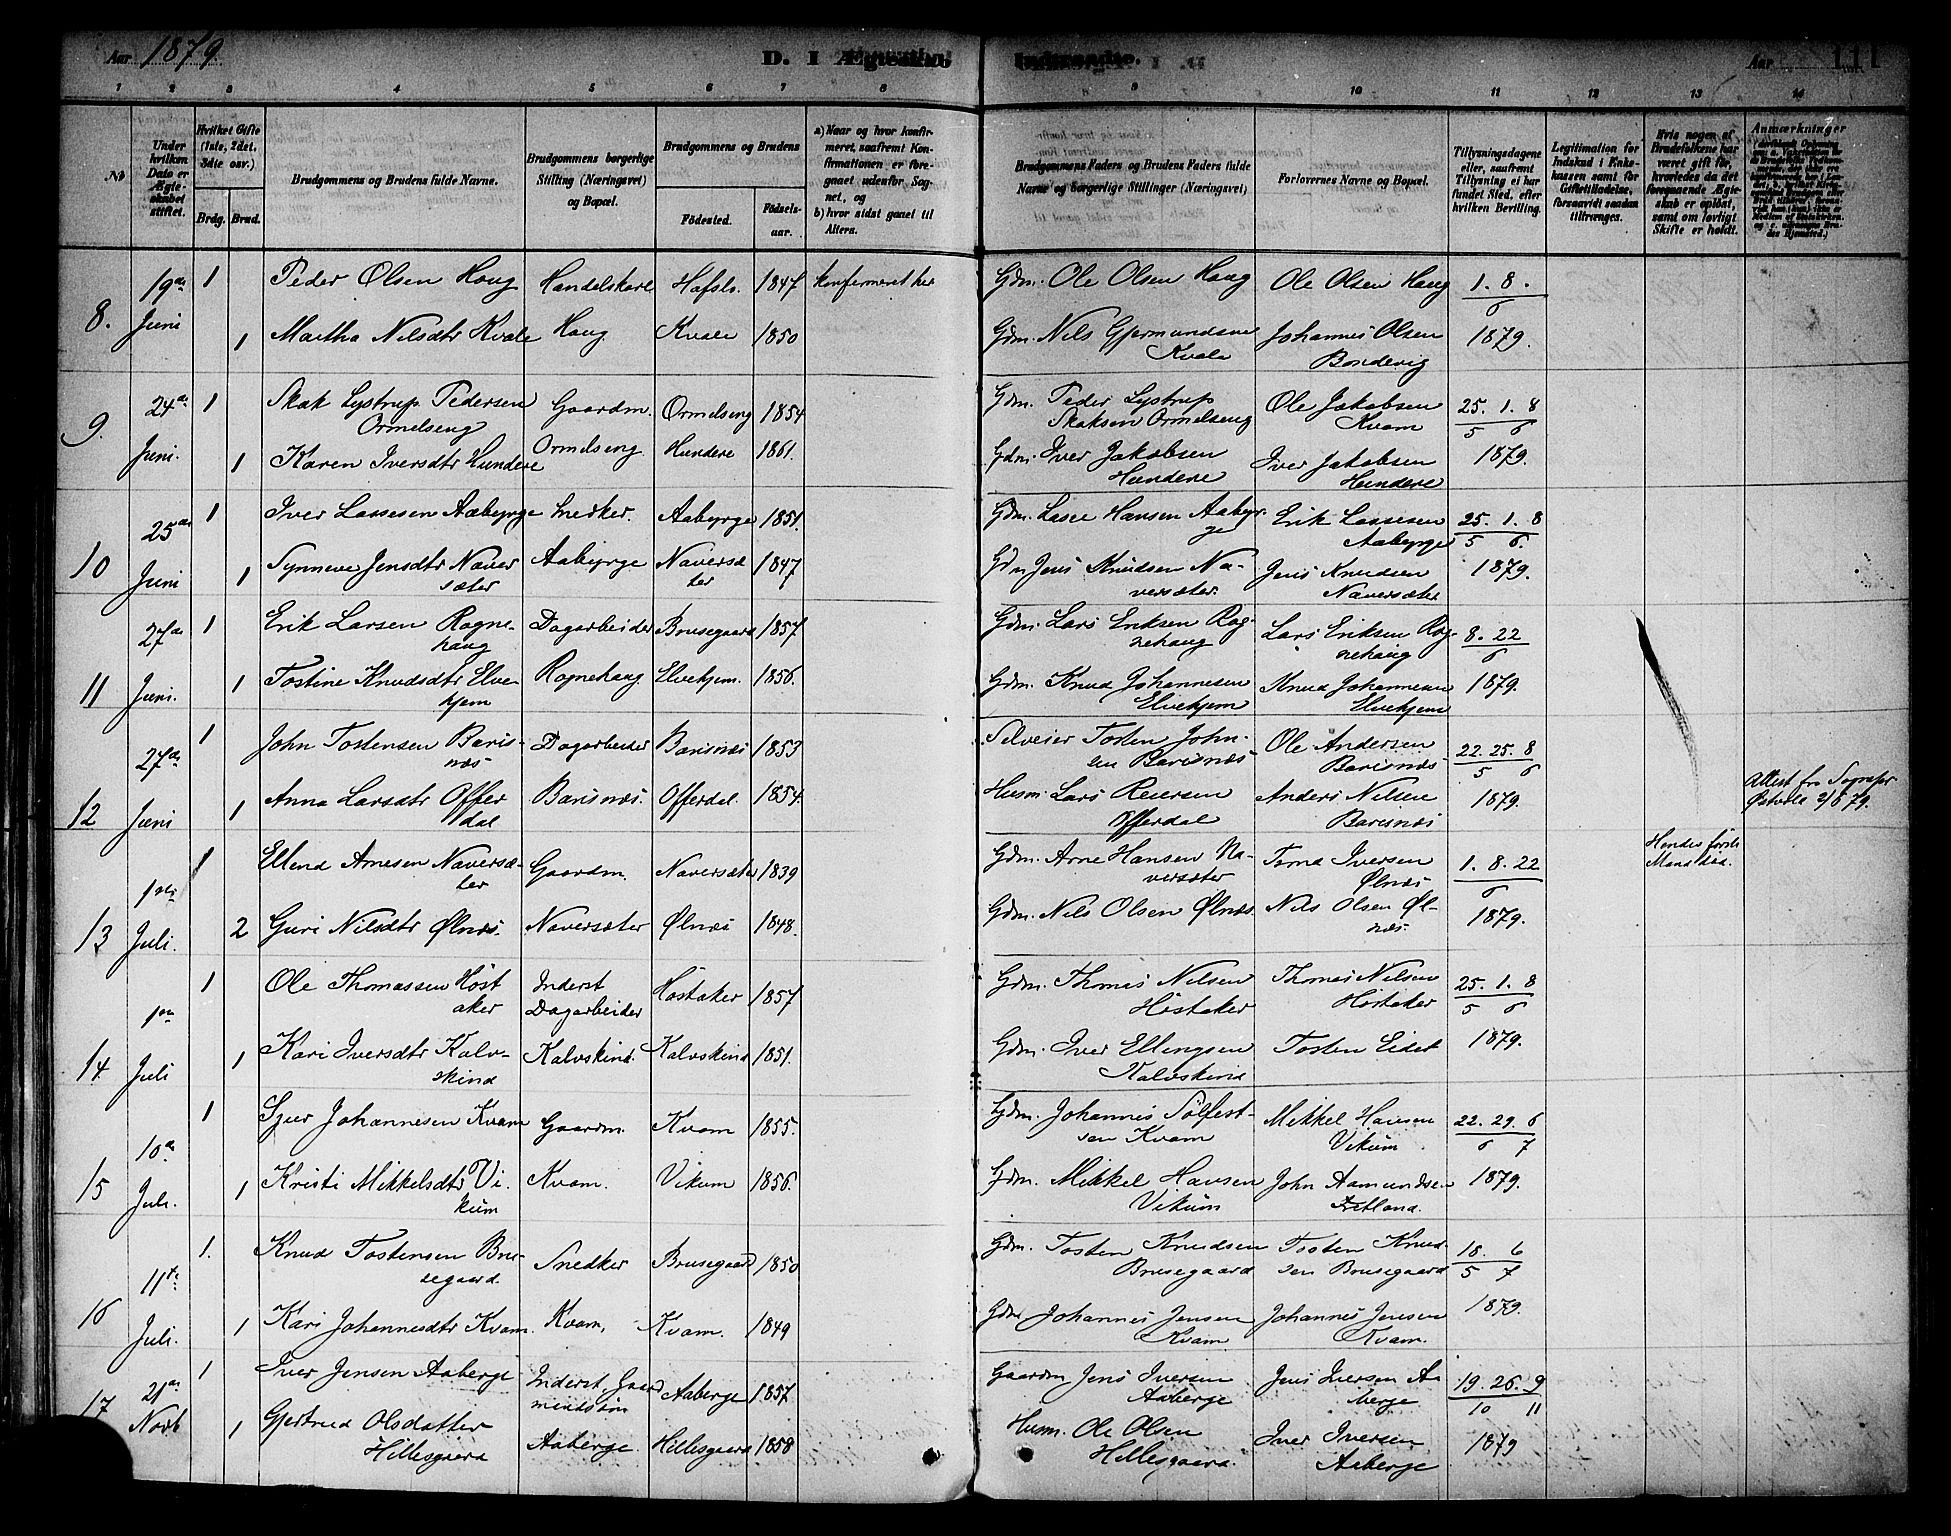 Aar 1879.
D. I Ægteskab Indtraadte.
Aar 111
1 2 3 4 5 6 7 8 9 10 11 12 13 14
No
Under hvilken Dato er Ægteskabet stiftet.
Hvilket Gifte (1ste, 2det, 3die osv.)
Brdg. Brud.
Brudgommens og Brudens fulde Navne.
Brudgommens borgerlige Stilling (Næringsvei) og Bopæl.
Brudgommens og Brudens
Fødested. Fødselsaar.
a) Naar og hvor konfirmeret, saafremt Konfirmationen er foregaaet udenfor Sognet, og
b) hvor sidst gaaet til Alters.
Brudgommens Faders og Brudens Faders fulde Navne og borgerlige Stillinger (Næringsvei)
Forlovernes Navne og Bopæl.
Tillysningsdagene eller, saafremt Tillysning ei har fundet Sted, efter hvilken Bevilling.
Legitimation for Indskud i Enkekassen samt for Giftetilladelse, forsaavidt saadan tiltrænges.
Hvis nogen af Brudefolkene har været gift før, hvorledes da det foregaaende Ægteskab er opløst, samt om lovligt Skifte er holdt.
Anmærkninger
8. 19de Juni
1 Peder Olsen Haug Handelskarl Hafslo. 1847 konfirmeret her Gdm. Ole Olsen Haug Ole Olsen Haug 1. 8. / 6
1 Martha Nilsdtr Kvale Haug Kvale 1850 Gdm. Nils Gjermundsen Kvale Johannes Olsen Bondevig 1879.
9. 24de Juni.
1 Skak Lystrup Pedersen Ormelseng Gaardm. Ormelseng 1854 Gdm. Peder Lystrup Skaksen Ormelseng Ole Jakobsen Kvam 25. 1. 8 / 5 6
1 Karen Iversdtr Hundere Ormelseng Hundere 1861. Gdm. Iver Jakobsen Hundere Iver Jakobsen Hundere 1879.
10 25de Juni
1 Iver Lassesen Aabyrge Snedker. Aabyrge 1851. Gdm. Lasse Hansen Aabyrge Erik Lassesen Aabyrge 25. 1. 8 / 5 6.
1 Synneve Jensdtr Naversæter Aabyrge Naversæter 1847 Gdm Jens Knudsen Naversæter. Jens Knudsen Naversæter 1879.
11 27de Juni.
1 Erik Larsen Rognehaug Dagarbeider Brusegaard 1857 Gdm. Lars Eriksen Rognehaug Lars Eriksen Rognehaug 8. 22 / 6
1 Tostine Knudsdtr Elvekjem Rognehaug Elvekjem. 1856. Gdm. Knud Johannesen Elvekjem Knud Johannesen Elvekjem 1879.
12 27de Juni
1 John Tostensen Barisnæs Dagarbeider Barisnæs 1853 Selveier Tosten Johnsen Barisnæs Ole Andersen Barisnæs 22. 25. 8 / 5 6
1 Anna Larsdtr Offerdal Barisnæs. Offerdal. 1854. Husm. Lars Reiersen Offerdal Anders Nilsen Barisnæs 1879. Attest fra Sognepr
13 1ste Juli.
1 Ellend Arnesen Naversæter Gaardm. Naversæter 1839 Gdm. Arne Hansen Naversæter Iversen Ølnæs 1. 8. 22 / 6 Hendes første Mand død.
2 Guri Nilsdtr Ølnæs. Naversæter Ølnæs 1848. Gdm. Nils Olsen Ølnæs. Nils Olsen Ølnæs. 1879.
14 1ste Juli
1 Ole Thomassen Höstaker Inderst Dagarbeider Höstaker 1857 Gdm. Thomes Nilsen Höstaker Thomes Nilsen Höstaker 25. 1. 8 / 5 6
1 Kari Iversdtr Kalvskind Kalvskind. Kalvskind 1851. Gdm. Iver Ellingsen Kalvskind Tosten Eidet 1879.
15 10de Juli.
1 Sjur Johannesen Kvam Gaardm. Kvam 1855. Gdm. Johannes Sølfestsen Kvam Mikkel Hansen Vikum 22. 29. 6 / 6 7
1 Kristi Mikkelsdtr Vikum Kvam. Vikum 1856. Gdm. Mikkel Hansen Vikum John Aamundsen Fretland. 1879.
16 11te Juli.
1. Knud Tostensen Brusegaard Snedker Brusegaard 1850 Gdm. Tosten Knudsen Brusegaard Tosten Knudsen Brusegaard 18. 6 / 5 7
1 Kari Johannesdtr Kvam. Kvam, Kvam. 1849 Gdm Johannes Jensen Kvam Johannes Jensen Kvam. 1879.
17 21de Novb
1 Iver Jensen Aaberge Inderst Gaardmandssön Aaberge 1857 Gaardm Jens Iversen Aaberge Jens Iversen Aaberge 19. 26. 9 / 10 11
1 Gjertrud Olsdatter Hillesgaard Aaberge. Hillesgaard 1858 Husm. Ole Olsen Hillesgaard. Iver Iversen Aaberge 1879